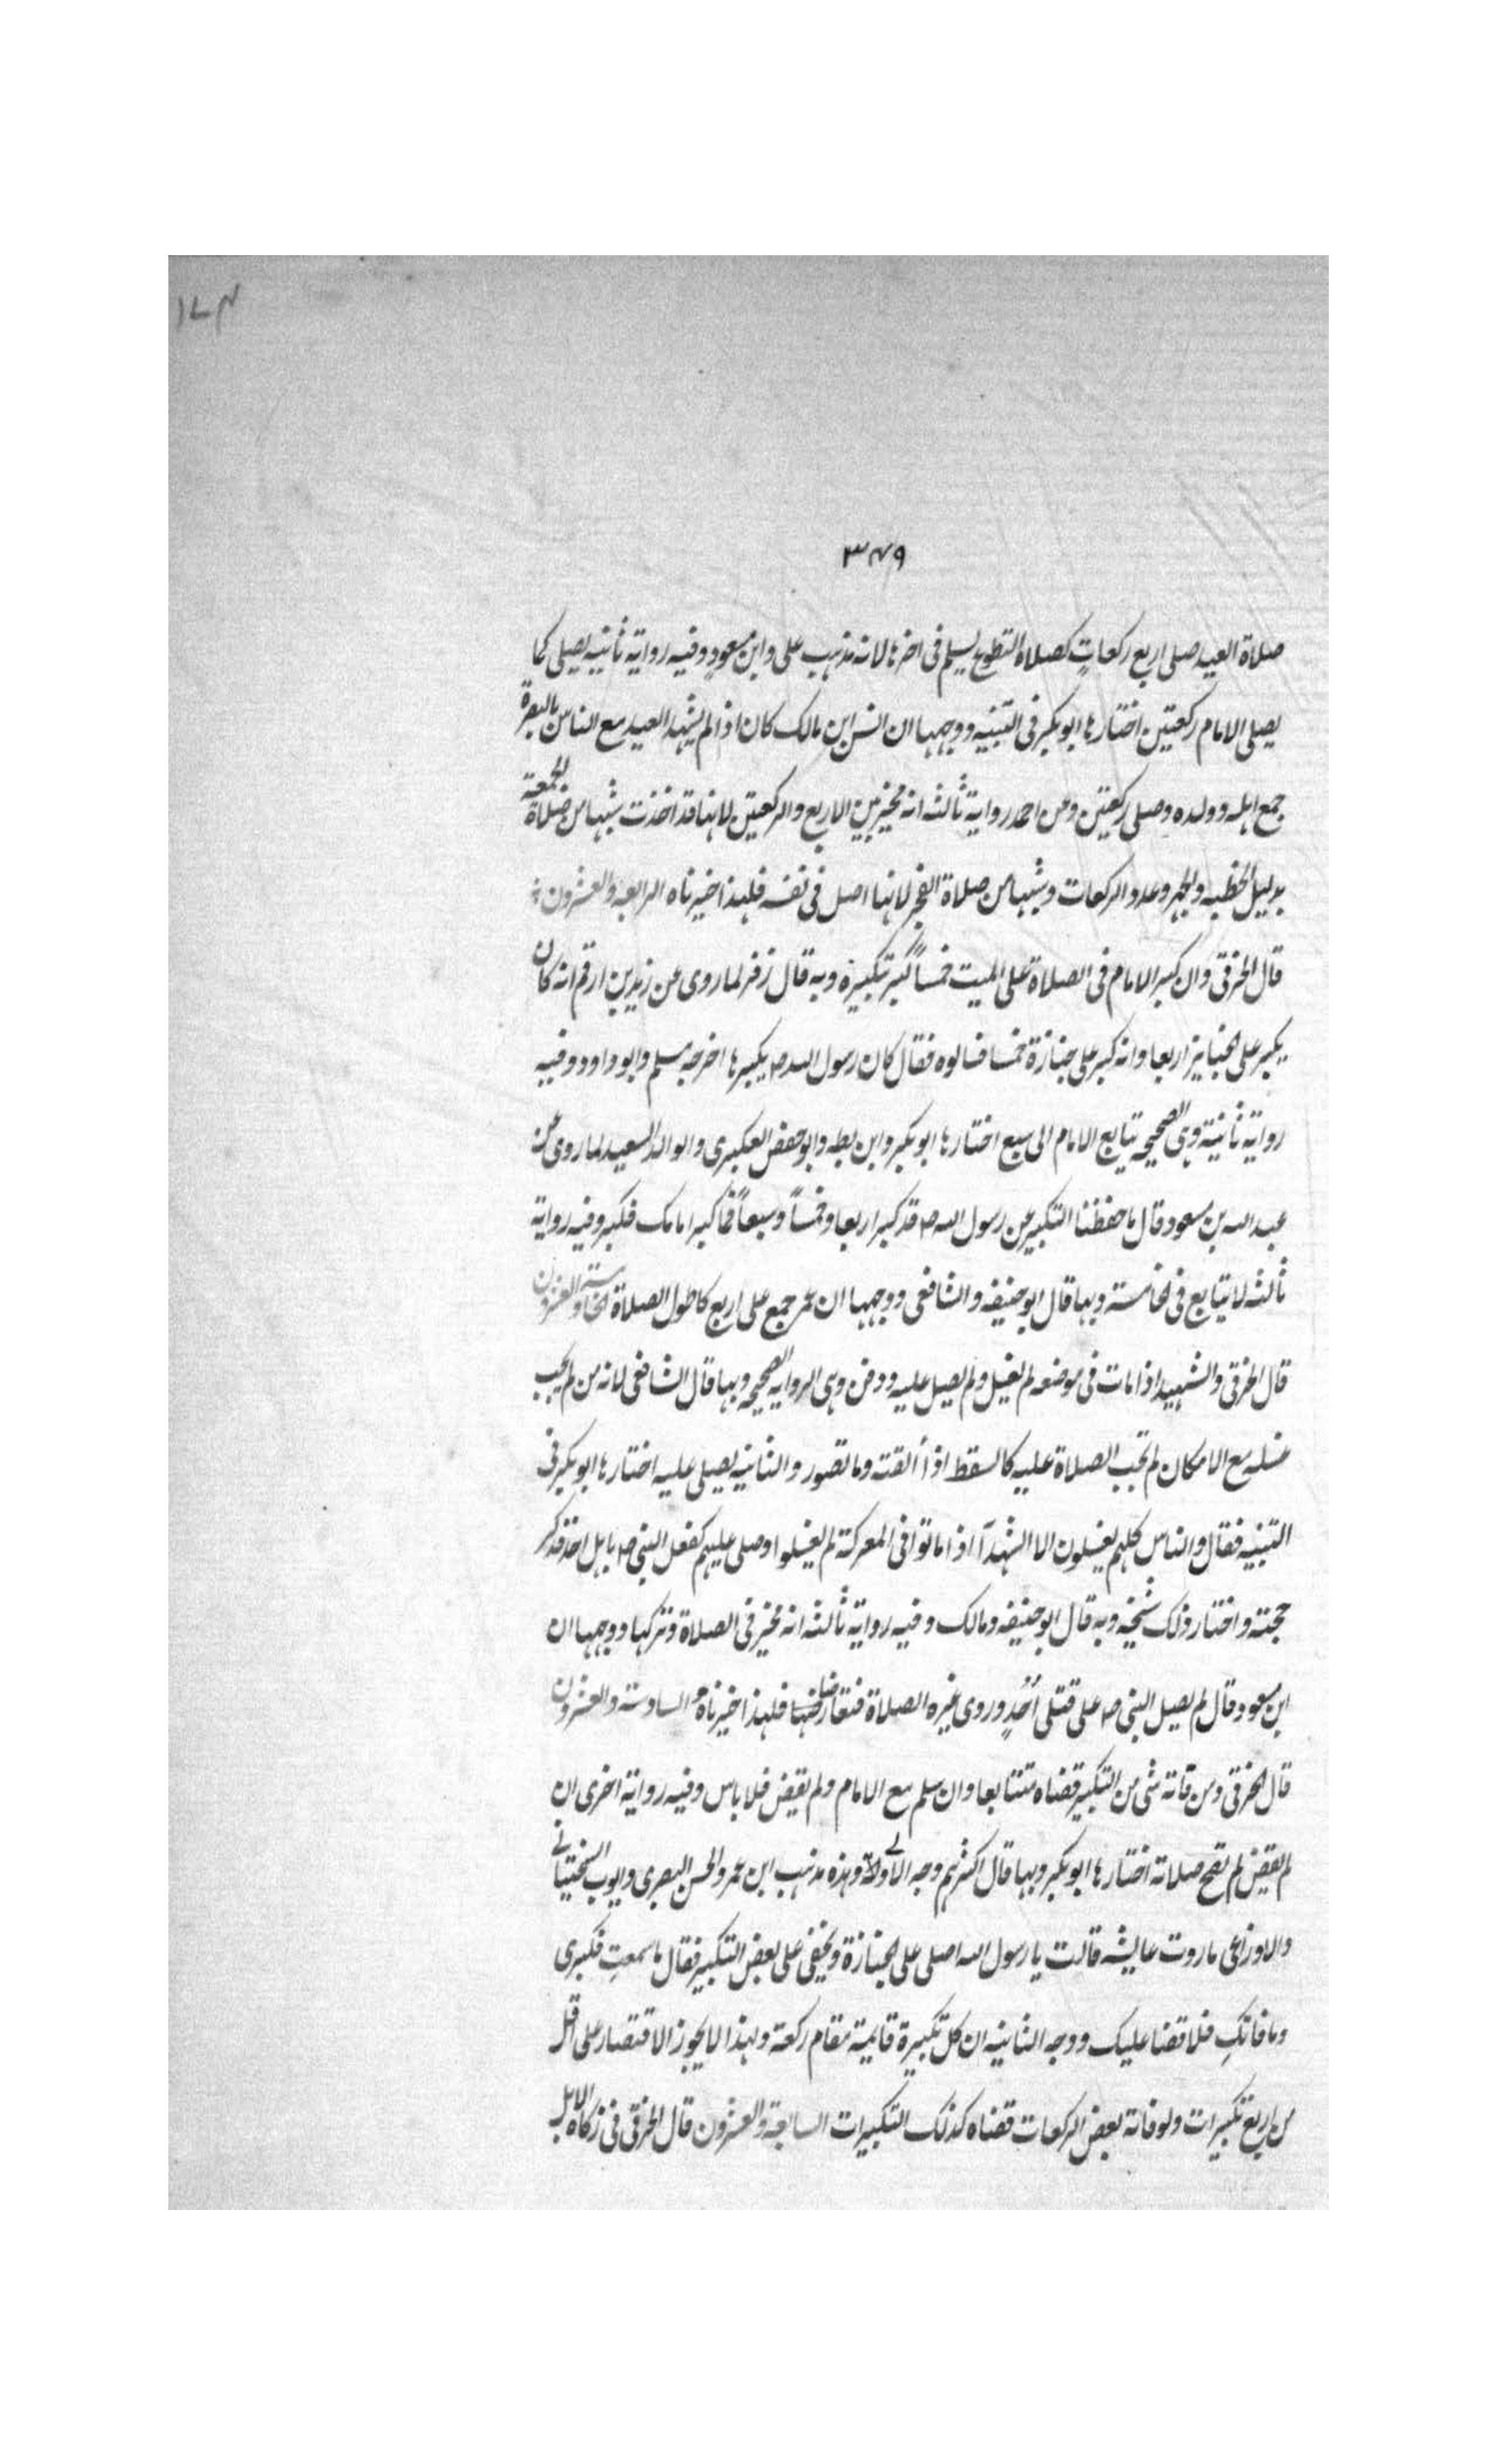 ١٧٤
٣٤٩
صلاة العيد صلى اربع ركعاتٍ كصلاة التطوع يسلم فى اخرها لانه مذهب على وابن مسعودٍ وفيه رواية ثانيه يصلى كما
يصلى الامام ركعتين اختارها ابو بكر فى التنبيه ووجهها ان انس ابن مالك كان اذا لم يشهد العيد مع الناس بالبصرة
جمع اهله وولده وصلى ركعتين وعن احمد رواية ثالثه انه مخير بين الاربع والركعتين لانها قد اخذت شبها من صلاة الجمعة
بدليل الخطبه والجهر وعدد الركعات وشبها من صلاة الفجر لانها اصل فى نفسه فلهذا خيرناه الرابعه والعشرون
قال الخرقى وان كبر الامام فى الصلاة على الميت خمساً كبر تكبيره وبه قال زفر لما روى عن زيد بن ارقم انه كان
يكبر على الجنايز اربعا وانه كبر على جنازة خمسا فسالوه فقال كان رسول الله صـ يكبرها اخرجه مسلم وابو داود وفيه
رواية ثانية وهى الصحيحه يتابع الامام الى سبع اختارها ابو بكر وابن بطه وابو حفص العكبرى والوالد السعيد لما روى عن
عبد الله بن مسعود قال ما حفظنا التكبير عن رسول الله صـ قد كبر اربعا وخمساً وسبعاً فما كبر امامك فكبر وفيه رواية
ثالثه لا يتابع فى الخامسة وبها قال ابو حنيفه والشافعى ووجهها ان عمر جمع على اربع كاطول الصلاة الخامسة والعشرون
قال الخرقى والشهيد اذا مات فى موضعه لم يغسل ولم يصل عليه ودفن وهى الروايه الصحيحه وبها قال الشافعى لانه من لم يجب
غسله مع الامكان لم تجب الصلاة عليه كالسقط اذا ألقته وما تصور والثانيه يصلى عليه اختارها ابو بكر فى
التنبيه فقال والناس كلهم يغسلون الا الشهدآ اذا ماتوا فى المعركة لم يغسلوا وصلى عليهم كفعل النبى صـ باهل احد فذكر
حجته واختار ذلك شيخه وبه قال ابو حنيفه ومالك وفيه رواية ثالثه انه مخير فى الصلاة وتركها ووجهها ان
ابن مسعود قال لم يصل النبى صـ على قتلى أُحُدٍ وروى غيره الصلاة فتعارضا فلهذا خيرناه السادسة والعشرون
قال الخرقى ومن فاته شى من التكبير قضاه متتابعا وان سلم مع الامام ولم يقض فلا باس وفيه رواية اخرى ان
لم يقض لم تصح صلاته اختارها ابو بكر وبها قال اكثرهم وجه الاولى وهذه مذهب ابن عمر والحسن البصرى وايوب السختيانى
والاوزاعى ما روت عايشه قالت يا رسول الله اصلى على الجنازة ويخفى على بعض التكبير فقال ما سمعتِ فكبرى
وما فاتكِ فلا قضا عليك ووجه الثانيه ان كل تكبيرة قايمة مقام ركعة ولهذا لا يجوز الاقتصار على اقل
من اربع تكبيرات ولو فاته بعض الركعات قضاه كذلك التكبيرات السابعة والعشرون قال الخرقى فى زكاة الابل